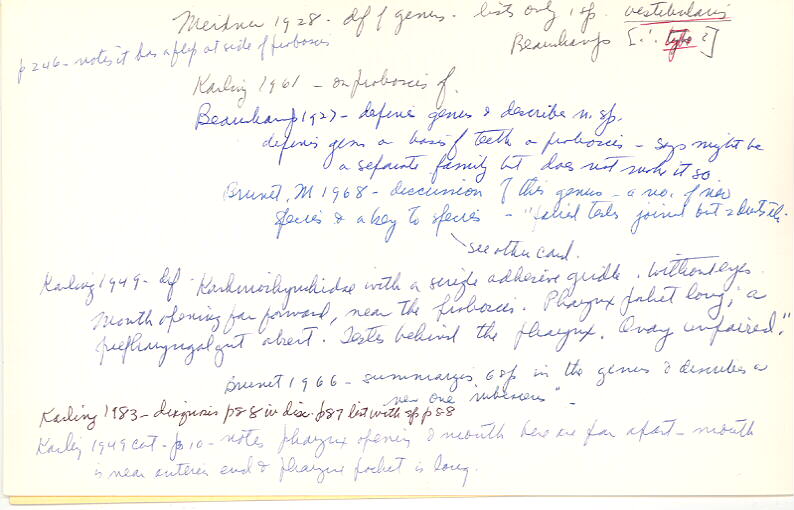 Meixner 1928 - df of genus - lists only 1 sp. vestibularis
Beauchamp [∴ type ?]
p 246 - notes it has a flap at side of proboscis
Karling 1961 - on proboscis of.
Beauchamp 1927 - defines genus & describes n. sp.
defines genus on basis of teeth on proboscis - says might be
a separate family but does not make it so.
Brunet, M 1968 - discussion of this genus - a no. of new
species & a key to species - "paired testes joined but
see other card.
Karling 1949 - df "Karkinorhynchidae with a single adhesive girdle. Without eyes.
Mouth opening far forward, near the proboscis. Pharynx pocket long; a
prepharyngal gut absent. Testes behind the pharynx. Ovary unpaired."
Brunet 1966 - summarizes 6 sp in the genus & describes a
new one
Karling 1983 - diagnosis p88 in disc. p87 list with sp p88
Karling 1949 cot - p 10 - notes pharynx opening & mouth here are far apart - mouth
is near anterior end & pharynx pocket is long.